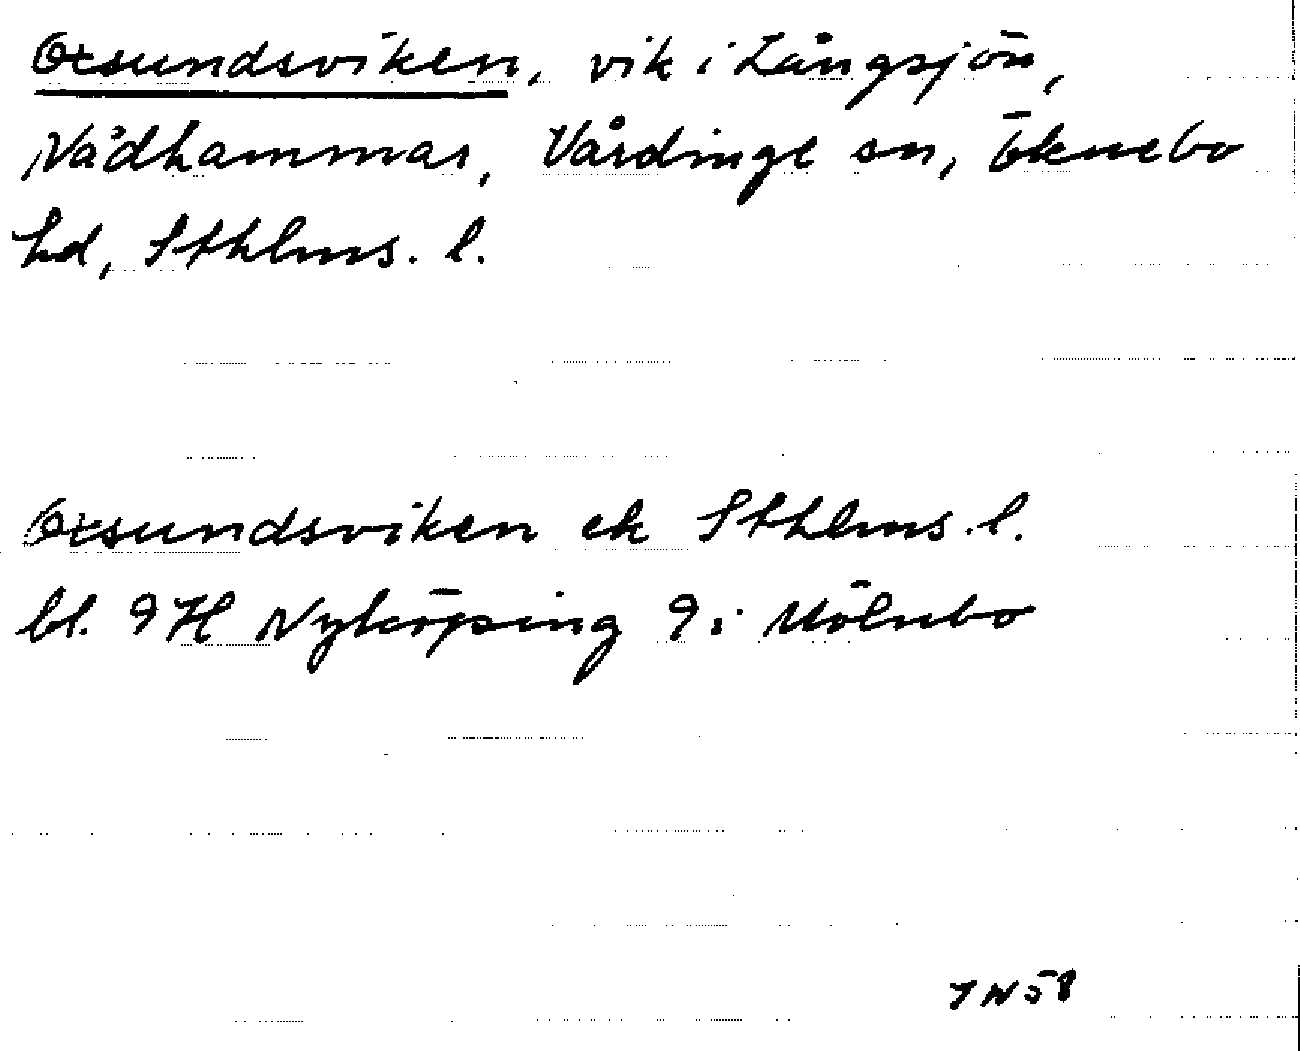 Oxsundsviken, vik i Långsjön,
Nådhammar, Vårdinge sn, Öknebo
hd, Sthlms. l.
Oxsundsviken ek Sthlms. l.
bl. 9H Nyköping 9i Mölnbo